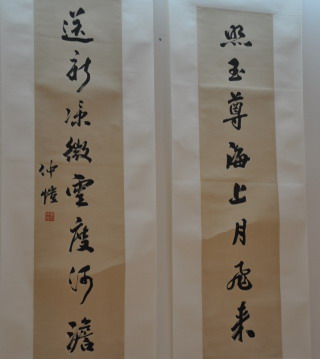 照玉尊海上月飛来
送新涼微雲度河澹
仲愷